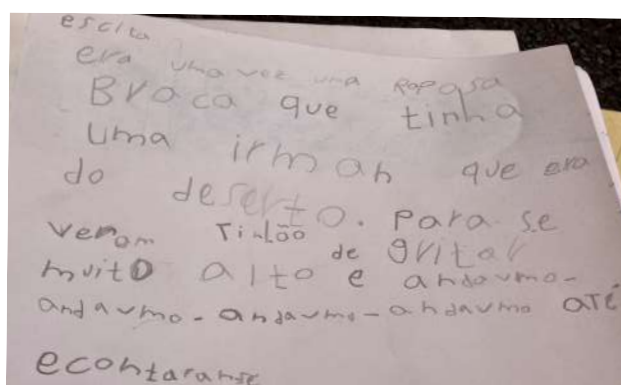 escita
era uma vez uma Raposa
Braca que tinha
uma irmah que era
do deserto. Para se
verom Tinhão de gritar
muito alto e andavmo-
andavmo-andavmo-andavmo ATÉ
econtaranse